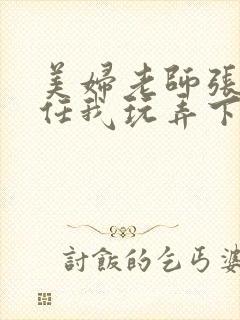 美婦老師張
任我玩弄下
討飯的乞丐婆